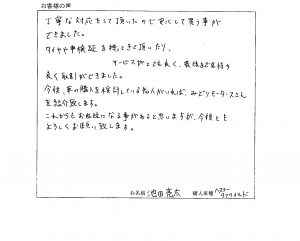 お客様の声
丁寧な対応をして頂いたので安心して買う事が
できました。
タイヤや車検証を持ってきて頂いたり、
サービスがとても良く、最後まで気持ち
良く取引ができました。
今後、車の購入を検討している知人がいれば、みどりモータースさん
を紹介致します。
これからもお世話になる事があると思いますが、今後とも
よろしくお願い致します。
お名前 池田亮太 購入車種 ハスラー
タフワイルド